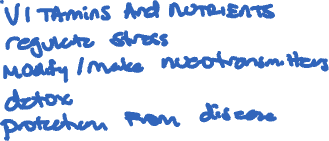 VITAmins And NUTRIENTS
regulate stress
Modify/make nuerotransmitters
detox
protection From disease